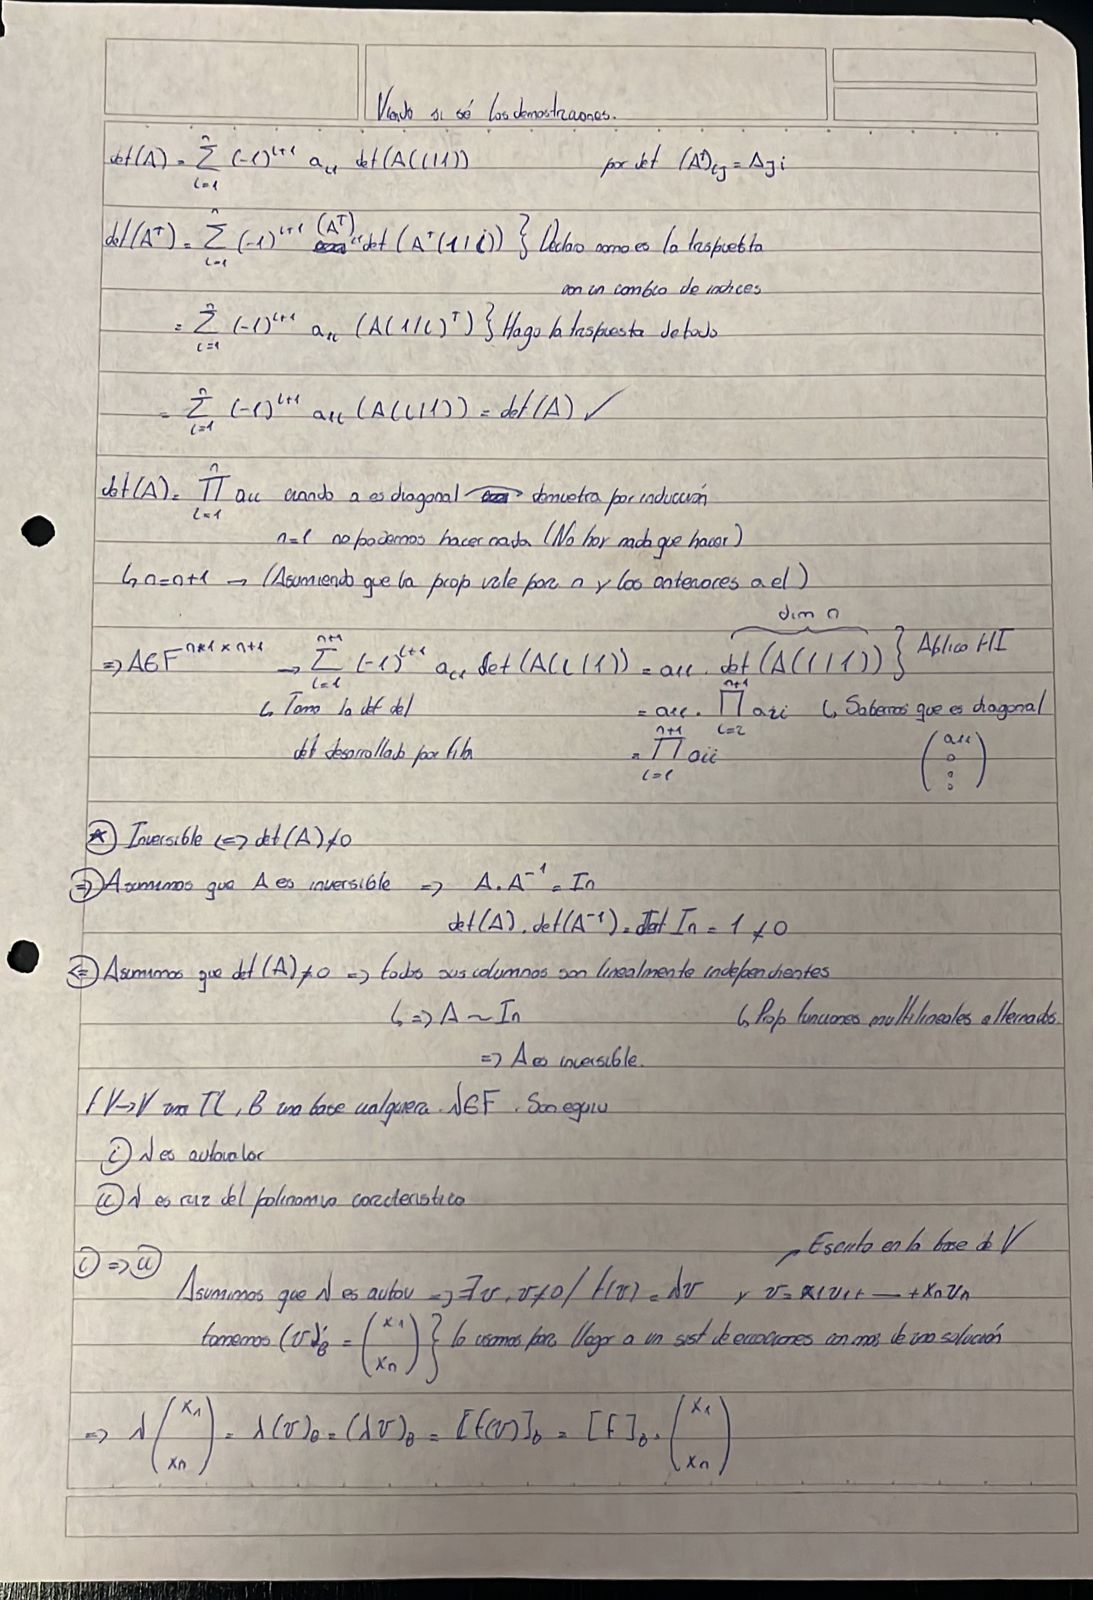 Viendo si sé las demostraciones.
det(A) = Σ_{i=1}^{n} (-1)^{i+1} a_{i1} det(A(i|1)) por def (A^T)_{ij} = A_{ji}
det(A^T) = Σ_{i=1}^{n} (-1)^{i+1} (A^T) det(A^T(1|i)) } Declaro como es la traspuesta
con un cambio de indices
= Σ_{i=1}^{n} (-1)^{i+1} a_{1i} (A(1|i)^T) } Hago la traspuesta de todo
= Σ_{i=1}^{n} (-1)^{i+1} a_{1i} (A(i|1)) = det(A) ✓
det(A) = ∏_{i=1}^{n} a_{ii} cuando a es diagonal demuetra por inducción
n=1 no podemos hacer nada (No hay nada que hacer)
↳ n=n+1 → (Asumiendo que la prop vale para n y los anteriores a el)
dim n
⇒ A∈F^{n+1 × n+1} → Σ_{i=1}^{n+1} (-1)^{i+1} a_{i1} det(A(i|1)) = a_{11} . det(A(1|1)) } Aplico HI
↳ Tomo la def del = a_{11} . ∏_{i=2}^{n+1} a_{ii} ↳ Sabemos que es diagonal
det desarrollado por fila = ∏_{i=1}^{n+1} a_{ii} (a_{11} 0 0 0)
★ Inversible ⇔ det(A)≠0
⇒) Asumimos que A es inversible ⇒ A . A^{-1} = In
det(A) . det(A^{-1}) = det In = 1 ≠ 0
⇐) Asumimos que det(A)≠0 ⇒ todos sus columnas son linealmente independientes
↳ ⇒ A ~ In ↳ Prop funciones multilineales alternados.
⇒ A es inversible.
f V→V una TL, B una base cualquiera. λ∈F . Son equiv
i) λ es autovalor
ii) λ es raiz del polinomio caracteristico
i) ⇒ ii) ↗ Escrito en la base de V
Asumimos que λ es autov ⇒ ∃v, v≠0 / f(v) = λv y v = x1v1+ — + xnvn
tomemos (v)_B = (x1 xn) } lo usamos para llegar a un sist de ecuaciones con mas de una solución
⇒ λ (x1 xn) = λ(v)_B = (λv)_B = [f(v)]_B = [f]_B . (x1 xn)